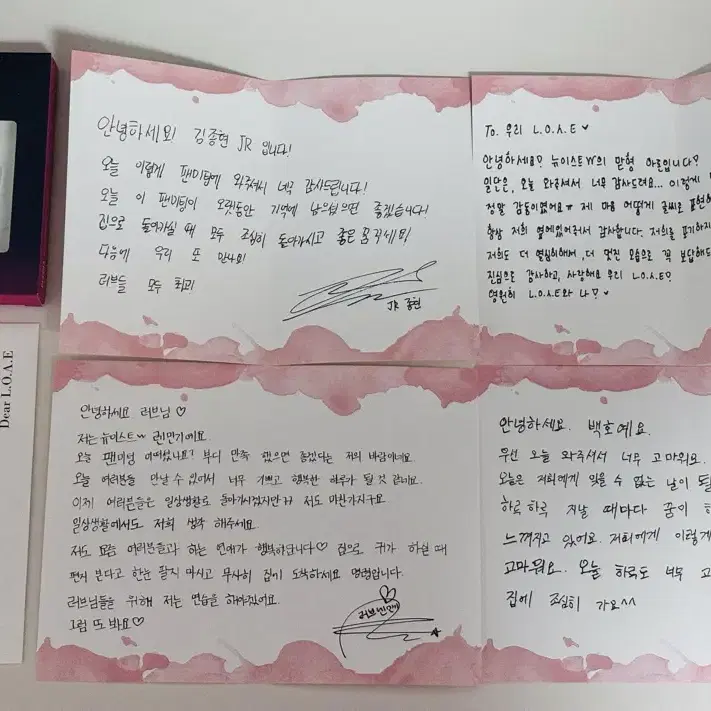 안녕하세요! 김종현 JR 입니다!
오늘 이렇게 팬미팅에 와주셔서 너무 감사드립니다!
오늘 이 팬미팅이 오랫동안 기억에 남으셨으면 좋겠습니다!
집으로 돌아가실 때 모두 조심히 돌아가시고 좋은 꿈 꾸세요!
다음에 우리 또 만나요!
러브들 모두 최고!
JR 종현
To. 우리 L.O.Λ.E ♥
안녕하세요? 뉴이스트W의 맏형 아론입니다?
일단은, 오늘 와주셔서 너무 감사드려요... 이렇게
정말 감동이었어요ㅠ 제 마음 어떻게 글씨로 표현
항상 저희 옆에있어주셔서 감사합니다. 저희를 포기하지
저희도 더 열심히해서, 더 멋진 모습으로 꼭 보답해도
진심으로 감사하고, 사랑해요 우리 L.O.Λ.E?
영원히 L.O.Λ.E와 나? ♥
Dear L.O.Λ.E
안녕하세요 러브님 ♡
저는 뉴이스트W 렌(민기)예요.
오늘 팬미팅 어떠셨나요? 부디 만족 했으면 좋겠다는 저의 바람이네요.
오늘 여러분들 만날 수 있어서 너무 기쁘고 행복한 하루가 될 것 같네요.
이제 여러분들은 일상생활로 돌아가시겠지만ㅠ 저도 마찬가지구요
일상생활에서도 저희 생각 해주세요.
저도 요즘 여러분들과 하는 연애가 행복하답니다♡ 집으로 귀가 하실 때
편지 본다고 한눈 팔지 마시고 무사히 집에 도착하세요 명령입니다.
러브님들을 위해 저는 연습을 해야겠어요.
그럼 또 봐요♡
안녕하세요. 백호예요.
우선 오늘 와주셔서 너무 고마워요.
오늘은 저희에게 잊을 수 없는 날이 될
하루 하루 지날 때마다 꿈이
느껴지고 있어요. 저희에게 이렇게
고마워요. 오늘 하루도 너무 고
집에 조심히 가요^^